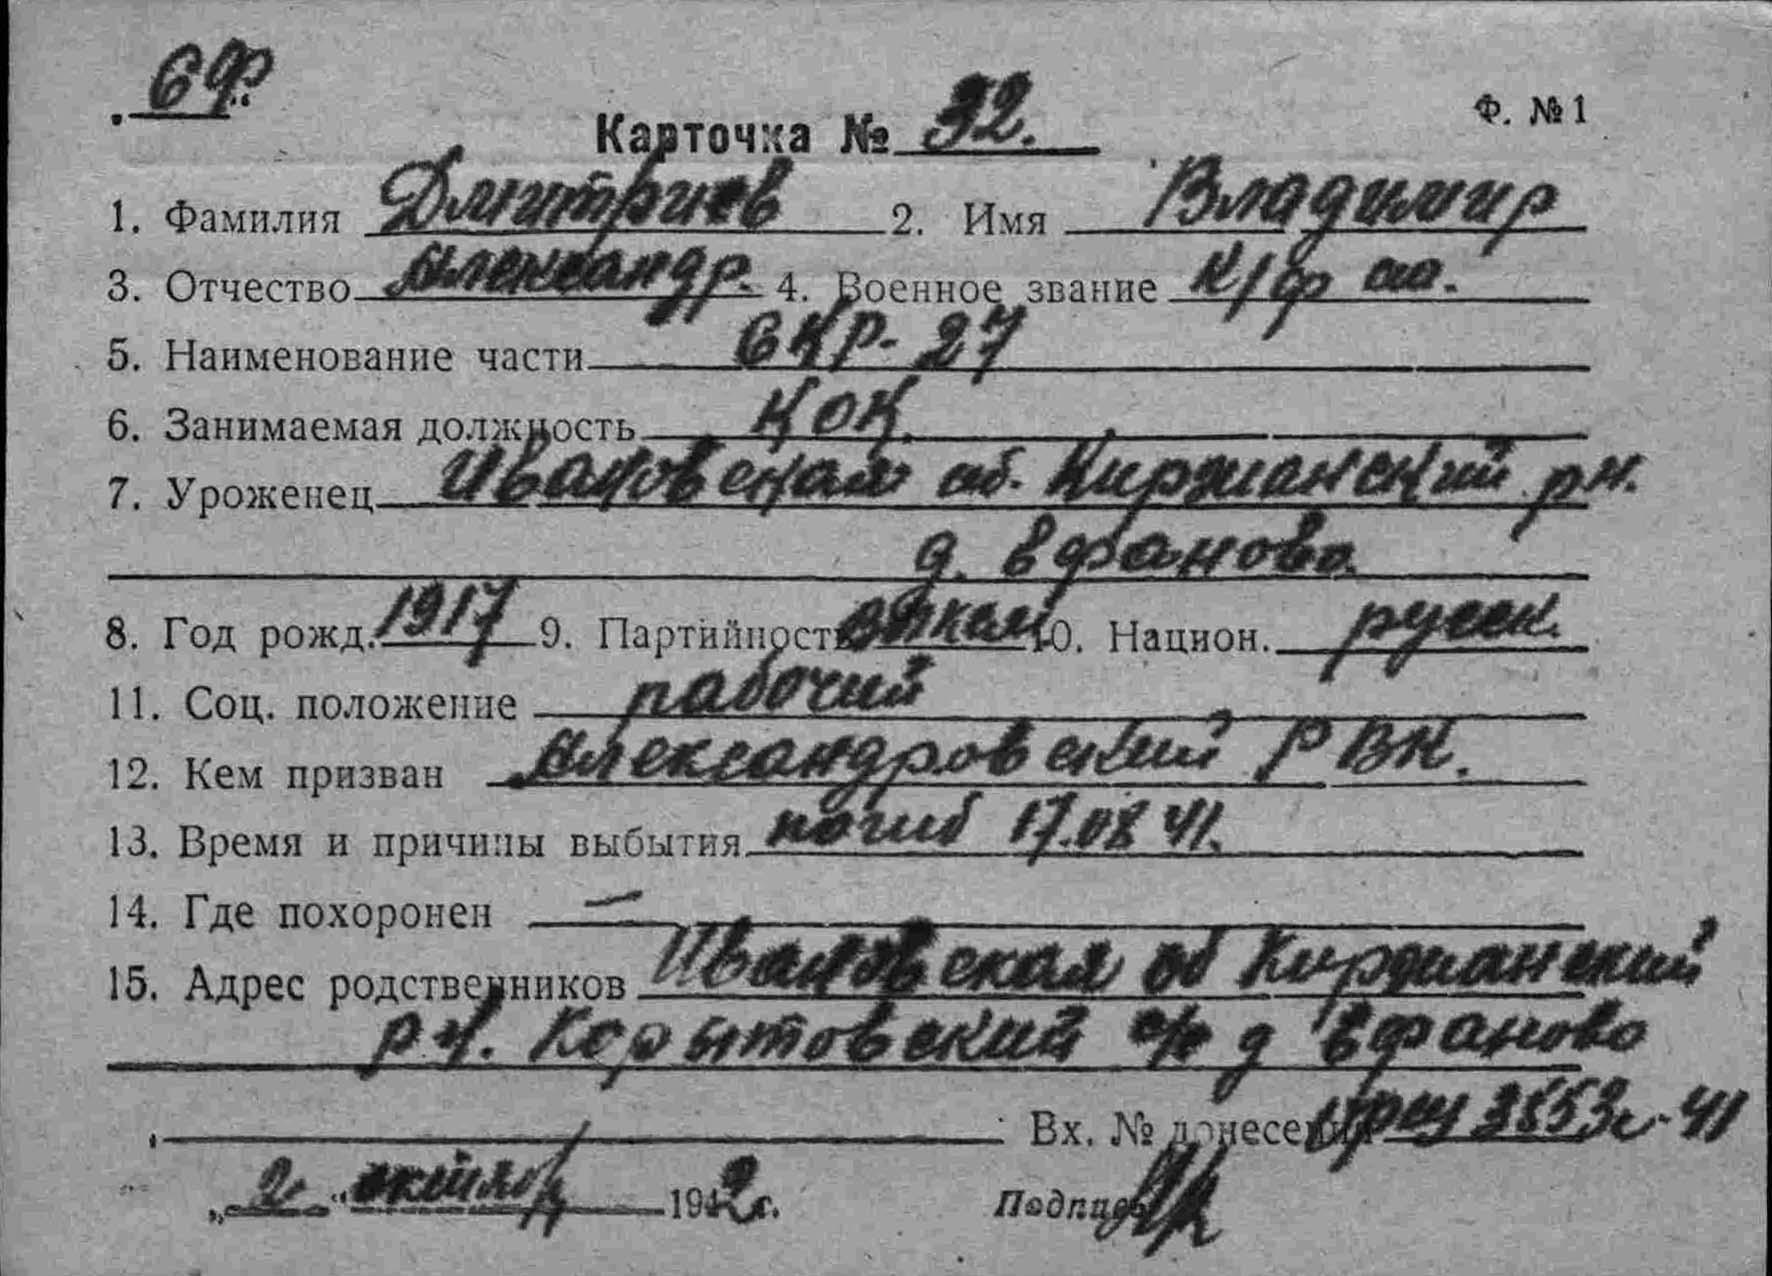 6Ф.
Ф. №1
Карточка № 32.
1. Фамилия Дмитриев 2. Имя Владимир
3. Отчество Александр. 4. Военное звание к/ф
5. Наименование части СКР-27
6. Занимаемая должность Кок.
7. Уроженец Ивановская об. Киржианский рн.
д. Вфаново
8. Год рожд. 1917 9. Партийность 10. Национ. русск.
11. Соц. положение рабочий
12. Кем призван Александровский РВК.
13. Время и причины выбытия погиб 17.08 41.
14. Где похоронен —
15. Адрес родственников Ивановская об Киржианский
рн. Корытовский с/с д Вфаново
Вх. № донесения 3553с-41
„2“ октября 1942г. Подпись